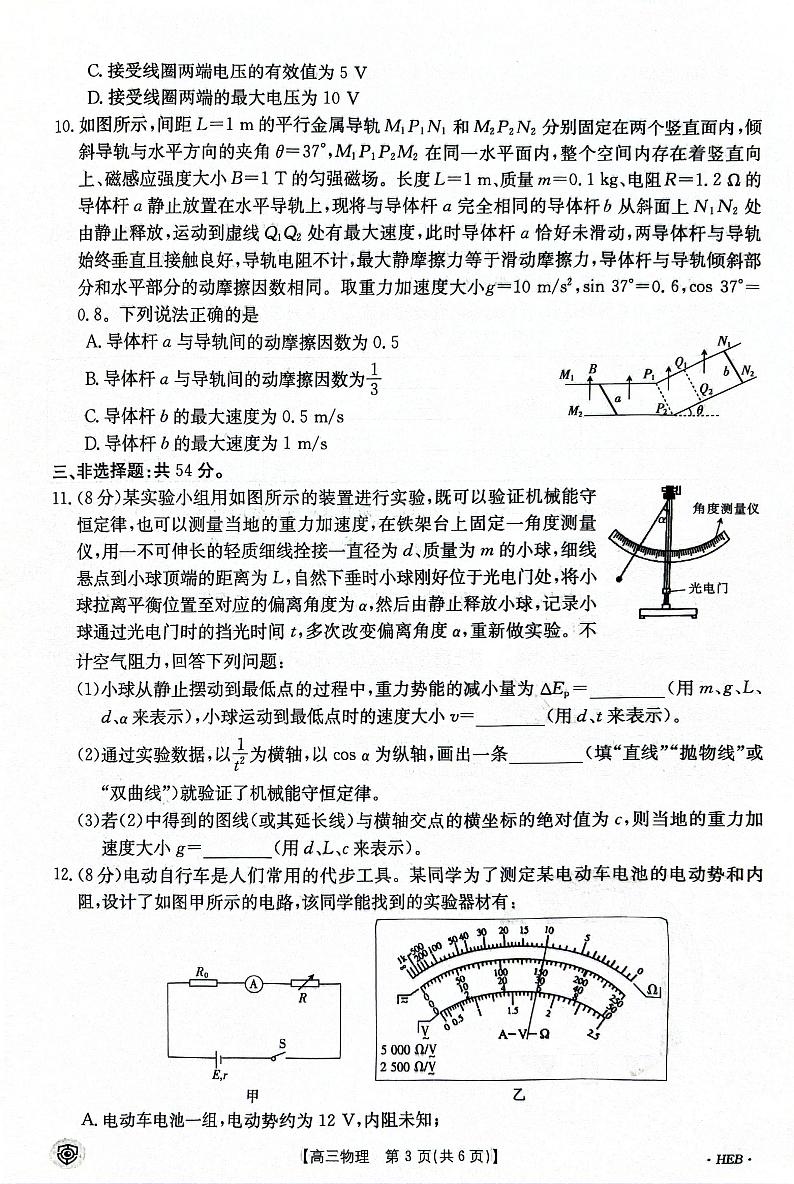 C. 接受线圈两端电压的有效值为 5 V
D. 接受线圈两端的最大电压为 10 V
10. 如图所示,间距 L=1 m 的平行金属导轨 M₁P₁N₁ 和 M₂P₂N₂ 分别固定在两个竖直面内,倾
斜导轨与水平方向的夹角 θ=37°,M₁P₁P₂M₂ 在同一水平面内,整个空间内存在着竖直向
上、磁感应强度大小 B=1 T 的匀强磁场。长度 L=1 m、质量 m=0.1 kg、电阻 R=1.2 Ω 的
导体杆 a 静止放置在水平导轨上,现将与导体杆 a 完全相同的导体杆 b 从斜面上 N₁N₂ 处
由静止释放,运动到虚线 Q₁Q₂ 处有最大速度,此时导体杆 a 恰好未滑动,两导体杆与导轨
始终垂直且接触良好,导轨电阻不计,最大静摩擦力等于滑动摩擦力,导体杆与导轨倾斜部
分和水平部分的动摩擦因数相同。取重力加速度大小g=10 m/s²,sin 37°=0.6,cos 37°=
0.8。下列说法正确的是
A. 导体杆 a 与导轨间的动摩擦因数为 0.5
B. 导体杆 a 与导轨间的动摩擦因数为1/3
C. 导体杆 b 的最大速度为 0.5 m/s
D. 导体杆 b 的最大速度为 1 m/s
M₁ B P₁ Q₁ N₁
a b N₂
M₂ P₂ Q₂ θ
三、非选择题:共 54 分。
11. (8 分)某实验小组用如图所示的装置进行实验,既可以验证机械能守
恒定律,也可以测量当地的重力加速度,在铁架台上固定一角度测量
仪,用一不可伸长的轻质细线拴接一直径为 d、质量为 m 的小球,细线
悬点到小球顶端的距离为 L,自然下垂时小球刚好位于光电门处,将小
球拉离平衡位置至对应的偏离角度为 α,然后由静止释放小球,记录小
球通过光电门时的挡光时间 t,多次改变偏离角度 α,重新做实验。不
计空气阻力,回答下列问题:
α
角度测量仪
光电门
(1)小球从静止摆动到最低点的过程中,重力势能的减小量为 ΔEₚ=________(用 m、g、L、
d、α 来表示),小球运动到最低点时的速度大小 v=________(用 d、t 来表示)。
(2)通过实验数据,以1/t²为横轴,以 cos α 为纵轴,画出一条________(填“直线”“抛物线”或
“双曲线”)就验证了机械能守恒定律。
(3)若(2)中得到的图线(或其延长线)与横轴交点的横坐标的绝对值为 c,则当地的重力加
速度大小 g=________(用 d、L、c 来表示)。
12. (8 分)电动自行车是人们常用的代步工具。某同学为了测定某电动车电池的电动势和内
阻,设计了如图甲所示的电路,该同学能找到的实验器材有:
R₀ A R
S
E,r
甲
∞ 1k 500 200 100 50 40 30 20 15 10 5 0 Ω
0 50 100 150 200 250
0 10 20 30 40 50
0 2 4 6 8 10
0 0.5 1 1.5 2 2.5
V
A-V-Ω
5 000 Ω/V
2 500 Ω/V
乙
A. 电动车电池一组,电动势约为 12 V,内阻未知;
【高三物理 第 3 页(共 6 页)】
· HEB ·